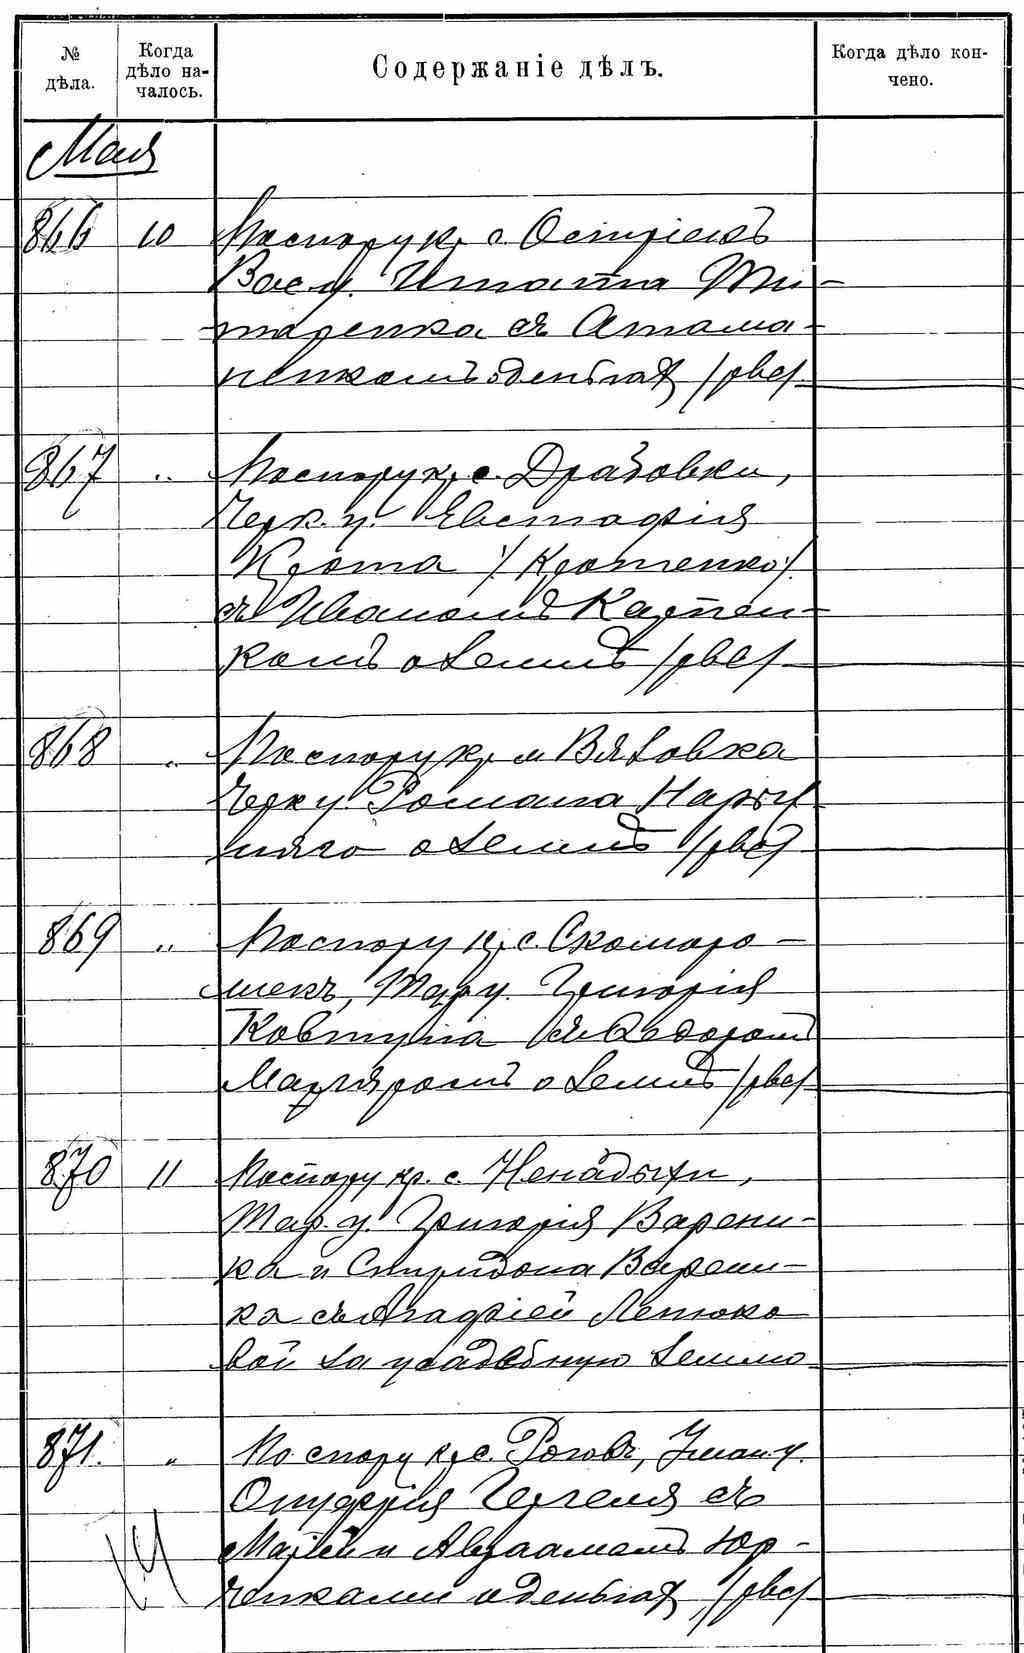 № дѣла. Когда дѣло началось. Содержаніе дѣлъ. Когда дѣло кончено.
Мая
866 10 По спору кр. с. Остріекъ
Вас. у. Игната Ти-
таренка съ Атама-
ненкомъ о деньгах /рвс/
867 " По спору кр. с. Драбовки,
Черк. у. Евстафія
Крота /Кротенко/
съ Иваномъ Карпен-
комъ о землѣ /рвс/
868 " По спору кр. м Вязовка
Черк у Романа Нарыж
няго о землѣ /рвс/
869 " По спору кр. с. Скоморо-
шекъ, Тар. у. Григорія
Ковтуна съ Федоромъ
о землѣ /рвс/
870 11 По спору кр. с. Ненадыхи,
Тар. у. Григорія Варени-
ка и СпиридонаВарени-
ка съ Агафіей Летюко
вой за усадебную землю
871. " По спору кр. с. Роговъ, Уман. у.
Онуфрія Гергеля съ
Маріей и Авраамомъ Юр-
ченками о деньгах /рвс/